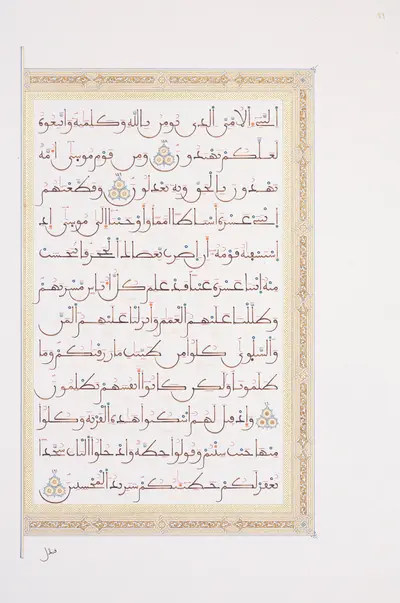 النبيء الامي الذي يومن بالله وكلمته واتبعوه
لعلكم تهتدون ومن قوم موسى امة
يهدون بالحق وبه يعدلون وقطعنهم
اثنتي عشرة اسباطا امما واوحينا الى موسى إذ
استسقيه قومه أن اضرب بعصاك الحجر فانبجست
منه اثنتا عشرة عينا قد علم كل أناس مشربهم
وظللنا عليهم الغمم وأنزلنا عليهم المن
والسلوى كلوا من طيبت ما رزقنكم وما
ظلمونا ولكن كانوا أنفسهم يظلمون
وإذ قيل لهم اسكنوا هذه القرية وكلوا
منها حيث شئتم وقولوا حطة وادخلوا الباب سجدا
تغفر لكم خطيئتكم سنزيد المحسنين
فبدل